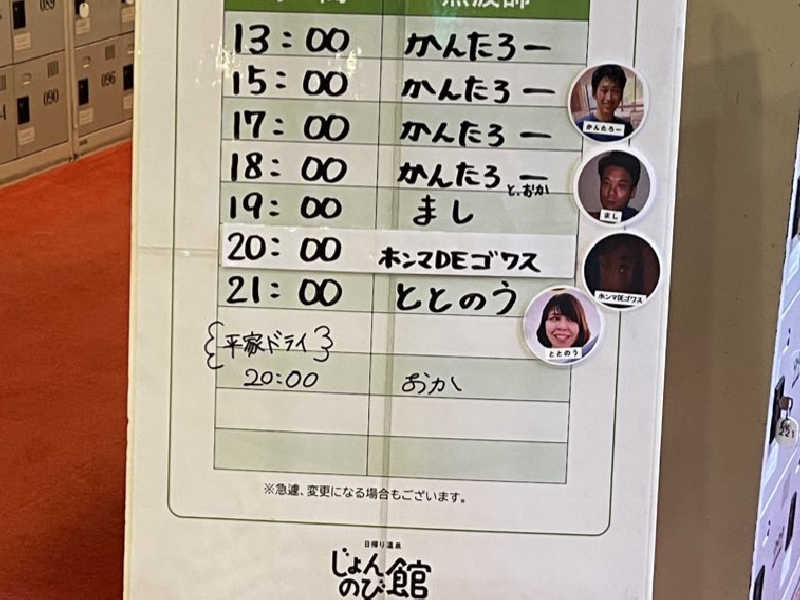 熱波師
13:00 かんたろー
15:00 かんたろー
17:00 かんたろー
18:00 かんたろー
と、おか
19:00 まし
20:00 ホンマDEゴワス
21:00 ととのう
{平家ドライ}
20:00 おか
※急遽、変更になる場合もございます。
日帰り温泉
じょんのび館
かんたろー
まし
ホンマDEゴワス
ととのう
089
090
096